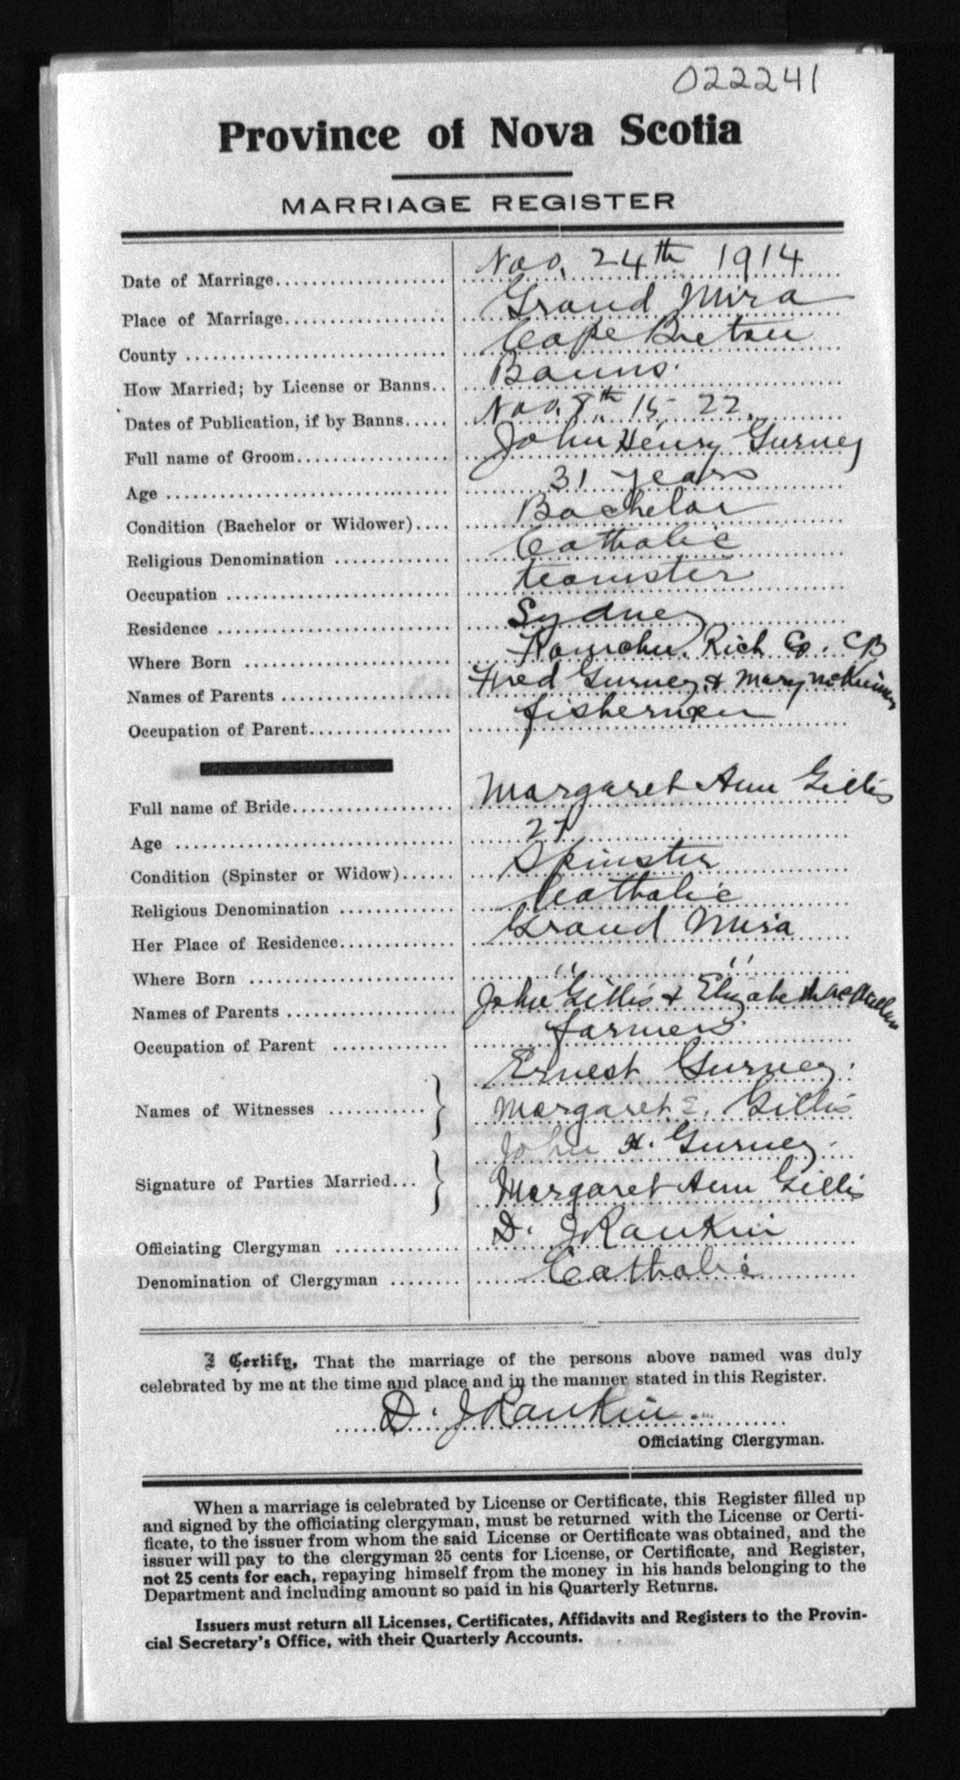 022241
Province of Nova Scotia
MARRIAGE REGISTER
Date of Marriage.................... Nov. 24th 1914
Place of Marriage.................. Grand Mira
County ............................. Cape Breton
How Married; by License or Banns.. Banns.
Dates of Publication, if by Banns..... Nov. 8th 15 22.
Full name of Groom.................. John Henry Gurney
Age ................................ 31 years
Condition (Bachelor or Widower).... Bachelor
Religious Denomination ............. Catholic
Occupation ......................... teamster
Residence .......................... Sydney
Where Born ........................ Rich Co. CB
Names of Parents .................. Fred Gurney & Mary
Occupation of Parent................ fishermen
Full name of Bride.................. Margaret Ann Gillis
Age ................................ 27
Condition (Spinster or Widow)...... Spinster
Religious Denomination ............. Catholic
Her Place of Residence............. Grand Mira
Where Born ........................ " "
Names of Parents .................. John Gillis &
Occupation of Parent .............. farmers.
Ernest Gurney.
Names of Witnesses ........... Margaret E. Gillis
John H. Gurney.
Signature of Parties Married... Margaret Ann Gillis
Officiating Clergyman ............. D. J Rankin
Denomination of Clergyman ........ Catholic
I Certify, That the marriage of the persons above named was duly
celebrated by me at the time and place and in the manner stated in this Register.
D. J Rankin
Officiating Clergyman.
When a marriage is celebrated by License or Certificate, this Register filled up
and signed by the officiating clergyman, must be returned with the License or Certi-
ficate, to the issuer from whom the said License or Certificate was obtained, and the
issuer will pay to the clergyman 25 cents for License, or Certificate, and Register,
not 25 cents for each, repaying himself from the money in his hands belonging to the
Department and including amount so paid in his Quarterly Returns.
Issuers must return all Licenses, Certificates, Affidavits and Registers to the Provin-
cial Secretary's Office, with their Quarterly Accounts.